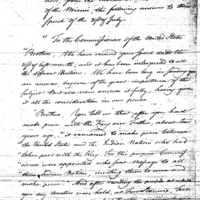 of the Miami, the following answer to the
Speech of the 31st of July.
"To the Commissioners of the United States
"Brothers, We have received your Speech dated the
31st of last month, and it has been interpreted to all
the different Nations. We have been long in sending you
an answer because of the great importance of the
subject. But we now answer it fully, having given
it all the consideration in our power.
"Brothers, You tell us that after you had
made peace with the King our Father, about ten
years ago, "it remained to make peace between
the United States and the Indian Nations who had
taken part with the King. For this purpose Commis-
sioners were appointed who sent messages to all
those Indian Nations, inviting them to come and
make peace. And after reciting the periods at which
you say treaties were held, at